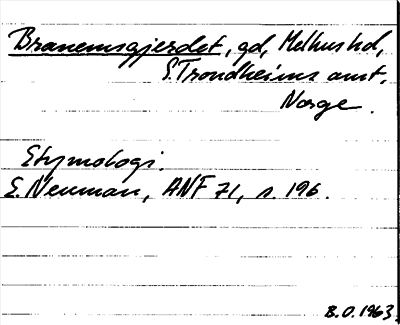 Branemsgjerdet, gd, Melhus hd,
S. Trondheims amt,
Norge.
Etymologi.
E. Neuman, ANF 71, s. 196.
B.O. 1963.